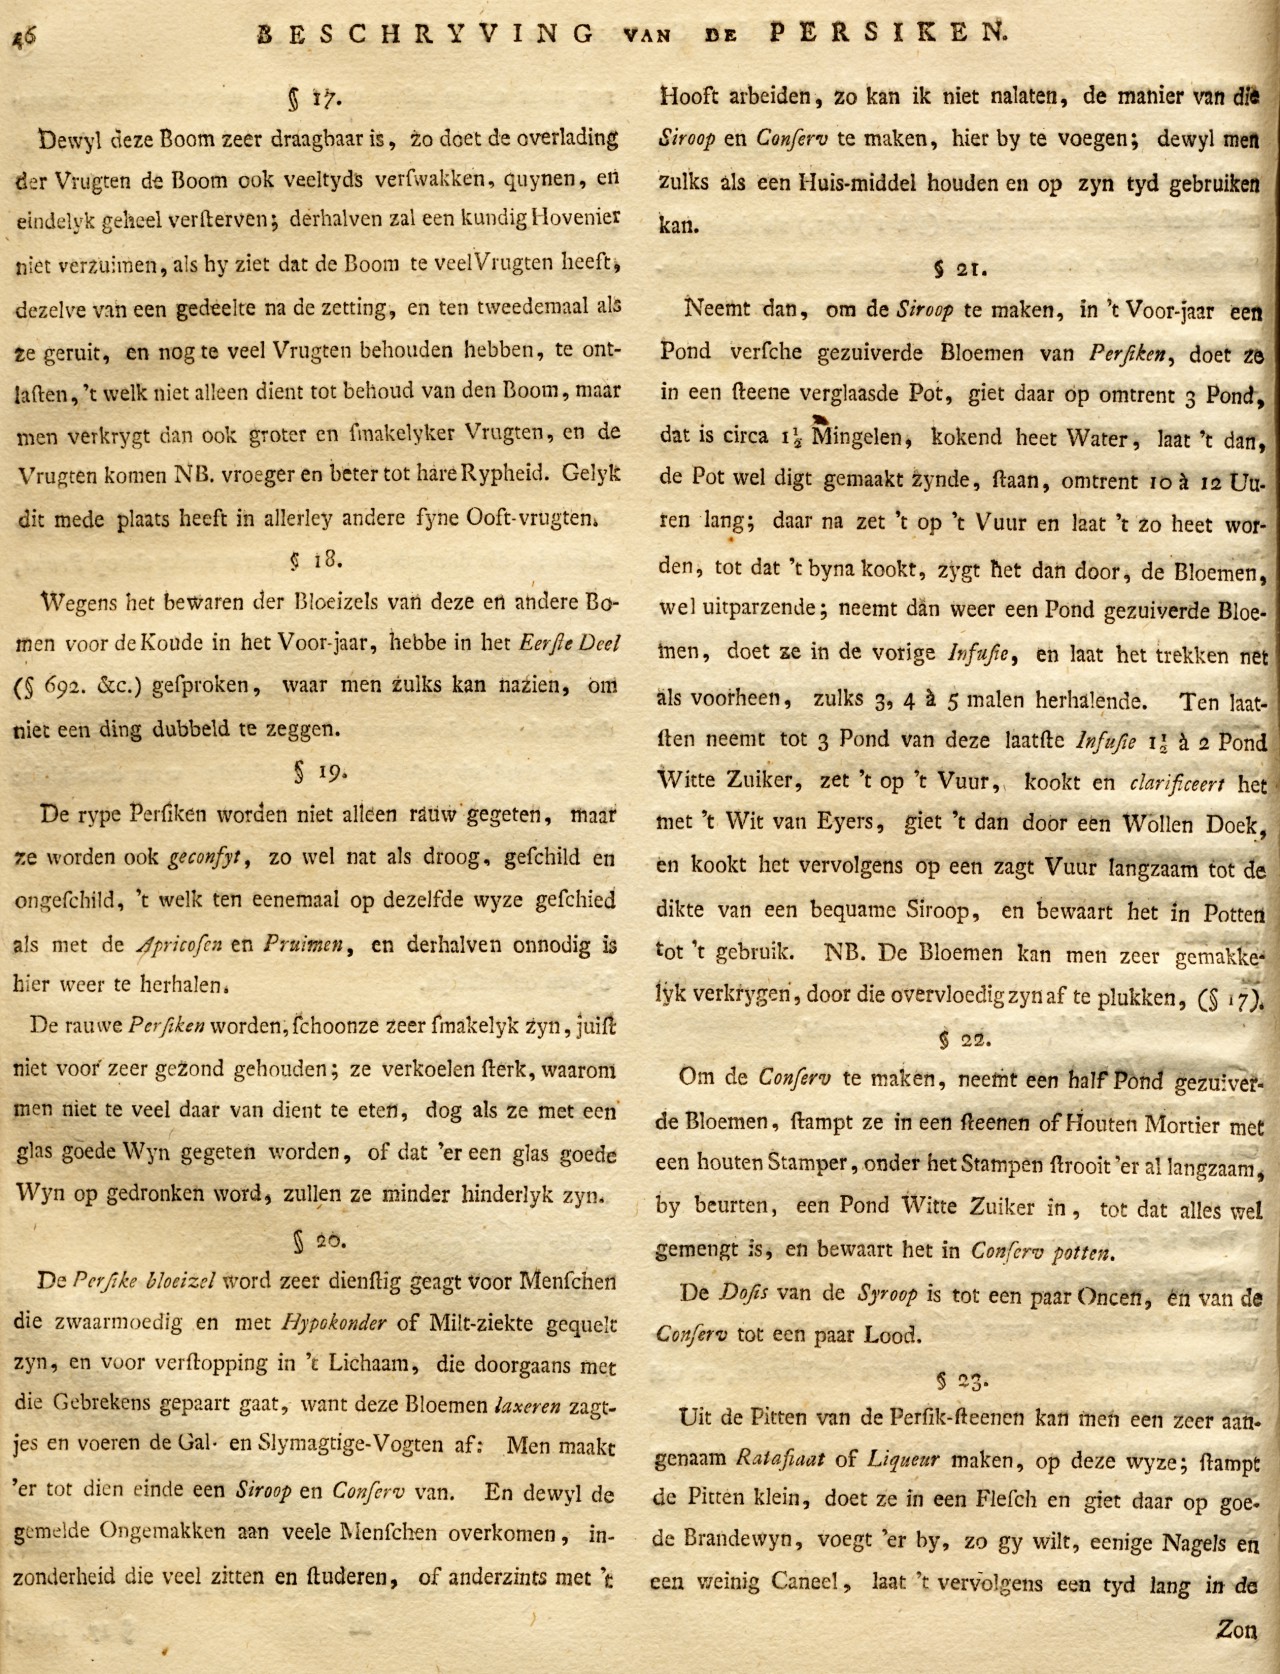 46 BESCHRYVING VAN DE PERSIKEN.
§ 17.
Dewyl deze Boom zeer draagbaar is, zo doet de overlading
der Vrugten de Boom ook veeltyds verſwakken, quynen, en
eindelyk geheel verſterven; derhalven zal een kundig Hovenier
niet verzuimen, als hy ziet dat de Boom te veel Vrugten heeft,
dezelve van een gedeelte na de zetting, en ten tweedemaal als
ze geruit, en nog te veel Vrugten behouden hebben, te ont-
laſten, 't welk niet alleen dient tot behoud van den Boom, maar
men verkrygt dan ook groter en ſmakelyker Vrugten, en de
Vrugten komen NB. vroeger en beter tot hare Rypheid. Gelyk
dit mede plaats heeft in allerley andere fyne Ooft-vrugten.
§ 18.
Wegens het bewaren der Bloeizels van deze en andere Bo-
men voor de Koude in het Voor-jaar, hebbe in het Eerſte Deel
(§ 692. &c.) geſproken, waar men zulks kan nazien, om
niet een ding dubbeld te zeggen.
§ 19.
De rype Perſiken worden niet alleen rauw gegeten, maar
ze worden ook geconfyt, zo wel nat als droog, geſchild en
ongeſchild, 't welk ten eenemaal op dezelfde wyze geſchied
als met de Apricoſen en Pruimen, en derhalven onnodig is
hier weer te herhalen.
De rauwe Perſiken worden, ſchoonze zeer ſmakelyk zyn, juiſt
niet voor zeer gezond gehouden; ze verkoelen ſterk, waarom
men niet te veel daar van dient te eten, dog als ze met een
glas goede Wyn gegeten worden, of dat 'er een glas goede
Wyn op gedronken word, zullen ze minder hinderlyk zyn.
§ 20.
De Perſike bloeizel word zeer dienſtig geagt voor Menſchen
die zwaarmoedig en met Hypokonder of Milt-ziekte gequelt
zyn, en voor verſtopping in 't Lichaam, die doorgaans met
die Gebrekens gepaart gaat, want deze Bloemen laxeren zagt-
jes en voeren de Gal- en Slymagtige-Vogten af: Men maakt
'er tot dien einde een Siroop en Conſerv van. En dewyl de
gemelde Ongemakken aan veele Menſchen overkomen, in-
zonderheid die veel zitten en ſtuderen, of anderzints met 't
Hooft arbeiden, zo kan ik niet nalaten, de manier van die
Siroop en Conſerv te maken, hier by te voegen; dewyl men
zulks als een Huis-middel houden en op zyn tyd gebruiken
kan.
§ 21.
Neemt dan, om de Siroop te maken, in 't Voor-jaar een
Pond verſche gezuiverde Bloemen van Perſiken, doet ze
in een ſteene verglaasde Pot, giet daar op omtrent 3 Pond,
dat is circa 1½ Mingelen, kokend heet Water, laat 't dan,
de Pot wel digt gemaakt zynde, ſtaan, omtrent 10 à 12 Uu-
ren lang; daar na zet 't op 't Vuur en laat 't zo heet wor-
den, tot dat 't byna kookt, zygt het dan door, de Bloemen,
wel uitparzende; neemt dan weer een Pond gezuiverde Bloe-
men, doet ze in de vorige Infuſie, en laat het trekken net
als voorheen, zulks 3, 4 à 5 malen herhalende. Ten laat-
ſten neemt tot 3 Pond van deze laatſte Infuſie 1½ à 2 Pond
Witte Zuiker, zet 't op 't Vuur, kookt en clarificeert het
met 't Wit van Eyers, giet 't dan door een Wollen Doek,
en kookt het vervolgens op een zagt Vuur langzaam tot de
dikte van een bequame Siroop, en bewaart het in Potten
tot 't gebruik. NB. De Bloemen kan men zeer gemakke-
lyk verkrygen, door die overvloedig zyn af te plukken, (§ 17).
§ 22.
Om de Conſerv te maken, neemt een half Pond gezuiver-
de Bloemen, ſtampt ze in een ſteenen of Houten Mortier met
een houten Stamper, onder het Stampen ſtrooit 'er al langzaam,
by beurten, een Pond Witte Zuiker in, tot dat alles wel
gemengt is, en bewaart het in Conſerv potten.
De Doſis van de Syroop is tot een paar Oncen, en van de
Conſerv tot een paar Lood.
§ 23.
Uit de Pitten van de Perſik-ſteenen kan men een zeer aan-
genaam Ratafiaat of Liqueur maken, op deze wyze; ſtampt
de Pitten klein, doet ze in een Fleſch en giet daar op goe-
de Brandewyn, voegt 'er by, zo gy wilt, eenige Nagels en
een weinig Caneel, laat 't vervolgens een tyd lang in de
Zon